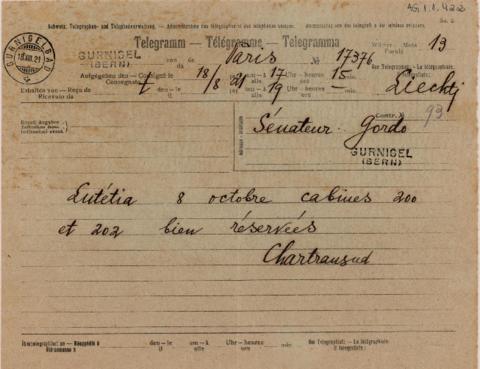 AG.1.1.422
Schweiz. Telegraphen- und Telephonverwaltung. – Administration des télégraphes et des téléphones suisses. – Amministrazione dei telegrafi e dei telefoni svizzeri.
Telegramm — Télégramme — Telegramma
GURNIGELBAD
18.VIII.21
GURNIGEL
(BERN)
von de da Paris № 17376 Wörter Mots Parole 13
Aufgegeben den – Consigné le Consegnato 18/8 21 um – à alle 17 Uhr – heures ore 15
Erhalten von – Reçu de Ricevuto da den – le il um – à alle 19 Uhr – heures ore —
Der Telegraphist: – Le télégraphiste:
Liechti
93
Sénateur Gordo
GURNIGEL
(BERN)
Lutétia 8 octobre cabines 200
et 202 bien réservées
Chartransud
den – le il um – à alle Uhr – heures ore